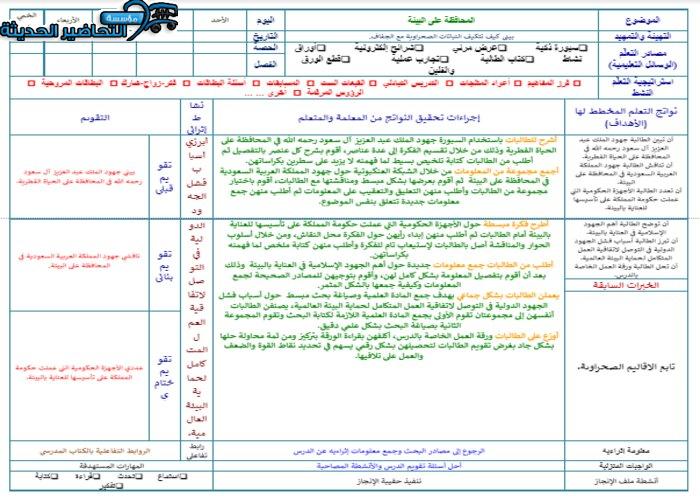 مؤسسة
التحاضير الحديثة
الموضوع
المحافظة على البيئة
اليوم
الأحد
الأربعاء
الخميس
التهيئة والتمهيد
بيني كيف تتكيف النباتات الصحراوية مع الجفاف.
التاريخ
مصادر التعلم
(الوسائل التعليمية)
سبورة ذكية
عرض مرئي
شرائح إلكترونية
أوراق
نشاط
كتاب الطالبة
تجارب عملية
قطع الورق
والفلين
الحصة
الفصل
استراتيجية التعلم
النشط
فرز المفاهيم
أعواد المثلجات
التدريس التبادلي
القبعات الست
المسابقات
أسئلة البطاقات
فكر-زواج-شارك
البطاقات المروحية
الرؤوس المرقمة
أخرى ... ...
نواتج التعلم المخطط لها
(الأهداف)
إجراءات تحقيق النواتج من المعلمة والمتعلم
نشا
ط
إثرائي
التقويم
أن تبين الطالبة جهود الملك عبد
العزيز آل سعود رحمه الله في
المحافظة على الحياة الفطرية.
أن تناقش الطالبة جهاد المملكة
العربية السعودية في المحافظة على
البيئة.
أن تعدد الطالبة الأجهزة الحكومية التي
عملت حكومة المملكة على تأسيسها
للعناية بالبيئة.
أن توضح الطالبة أهم الجهود
الإسلامية في العناية بالبيئة.
أن تبرز الطالبة أسباب فشل الجهود
الدولية في التوصل لاتفاقية العمل
المتكامل لحماية البيئة العالمية.
أن تحل الطالبة ورقة العمل الخاصة
بالدرس.
الخبرات السابقة
تابع الأقاليم الصحراوية.
أشرح للطالبات باستخدام السبورة جهود الملك عبد العزيز آل سعود رحمه الله في المحافظة على
الحياة الفطرية وذلك من خلال تقسيم الفكرة إلى عدة عناصر، أقوم بشرح كل عنصر بالتفصيل ثم
أطلب من الطالبات كتابة تلخيص بسيط لما فهمته لا يزيد على سطرين بكراساتهن.
أجمع مجموعة من المعلومات من خلال الشبكة العنكبوتية حول جهود المملكة العربية السعودية
في المحافظة على البيئة ثم أقوم بعرضها بشكل مبسط ومناقشتها مع الطالبات، أقوم باختيار
مجموعة من الطالبات وأطلب منهن التعليق والتعقيب على المعلومات ثم أطلب منهن جمع
معلومات جديدة تتعلق بنفس الموضوع.
أطرح فكرة مبسطة حول الأجهزة الحكومية التي عملت حكومة المملكة على تأسيسها للعناية
بالبيئة أمام الطالبات ثم أطلب منهن إبداء رأيهن حول الفكرة محل النقاش، ومن خلال أسلوب
الحوار والمناقشة أصل بالطالبات لإستيعاب تام للفكرة وأطلب منهن كتابة ملخص لما فهمنه
بكراساتهن.
أطلب من الطالبات جمع معلومات جديدة حول أهم الجهود الإسلامية في العناية بالبيئة وذلك
بعد أن أقوم بتفصيل المعلومة بشكل كامل لهن، وأقوم بتوجيههن للمصادر الصحيحة لجمع
المعلومات وكيفية جمعها بالشكل المثمر.
يعملن الطالبات بشكل جماعي بهدف جمع المادة العلمية وصياغة بحث مبسط حول أسباب فشل
الجهود الدولية في التوصل لاتفاقية العمل المتكامل لحماية البيئة العالمية، يصنفن الطالبات
أنفسهن إلى مجموعتان تقوم الأولى بجمع المادة العلمية اللازمة لكتابة البحث وتقوم المجموعة
الثانية بصياغة البحث بشكل علمي دقيق.
أوزع على الطالبات ورقة العمل الخاصة بالدرس، أكلفهن بقراءة الورقة بتركيز ومن ثمة محاولة حلها
بشكل جاد بغرض تقويم الطالبات لتحصيلهن بشكل رقمي يسهم في تحديد نقاط القوة والضعف
والعمل على تلافيها.
أبرزي
أسبا
ب
فشل
الجه
ود
الدو
لية
في
التو
صل
لاتفا
قية
العم
ل
المت
كامل
لحما
ية
البيئة
العال
مية.
تقو
يم
قبلي
بيني جهود الملك عبد العزيز آل سعود
رحمه الله في المحافظة على الحياة الفطرية.
تقو
يم
بنائي
ناقشي جهود المملكة العربية السعودية في
المحافظة على البيئة.
تقو
يم
ختام
ي
عددي الأجهزة الحكومية التي عملت حكومة
المملكة على تأسيسها للعناية بالبيئة.
معلومة إثرائية
الرجوع إلى مصادر البحث وجمع معلومات إثرائية عن الدرس
رابط
تفاعلي
الروابط التفاعلية بالكتاب المدرسي
الواجبات المنزلية
أحل أسئلة تقويم الدرس والأنشطة المصاحبة
المهارات المستهدفة
أنشطة ملف الإنجاز
تنفيذ حقيبة الإنجاز
استماع
تحدث
قراءة
كتابة
تفكير